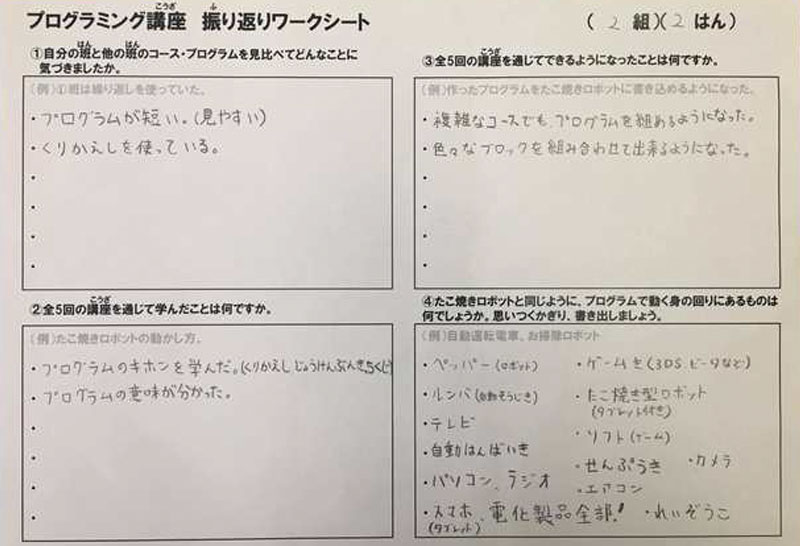 プログラミング講座 振り返りワークシート
( 2 組)( 2 はん)
①自分の班と他の班のコース・プログラムを見比べてどんなことに
気づきましたか。
(例)①班は繰り返しを使っていた。
・プログラムが短い。(見やすい)
・くりかえしを使っている。
・
・
・
・
②全5回の講座を通じて学んだことは何ですか。
(例)たこ焼きロボットの動かし方。
・プログラムのキホンを学んだ。(くりかえし じょうけんぶんき
・プログラムの意味が分かった。
・
・
・
・
③全5回の講座を通じてできるようになったことは何ですか。
(例)作ったプログラムをたこ焼きロボットに書き込めるようになった。
・複雑なコースでも、プログラムを組めるようになった。
・色々なブロックを組み合わせて出来るようになった。
・
・
・
・
④たこ焼きロボットと同じように、プログラムで動く身の回りにあるものは
何でしょうか。思いつくかぎり、書き出しましょう。
(例)自動運転電車、お掃除ロボット
・ペッパー(ロボット)
・ルンバ(自動そうじき)
・テレビ
・自動はんばいき
・パソコン、ラジオ
・スマホ、電化製品全部!
(タブレット)
・ゲームき(3DS、ビータなど)
・たこ焼き型ロボット
(タブレット付き)
・ソフト(ゲーム)
・せんぷうき ・カメラ
・エアコン
・れいぞうこ